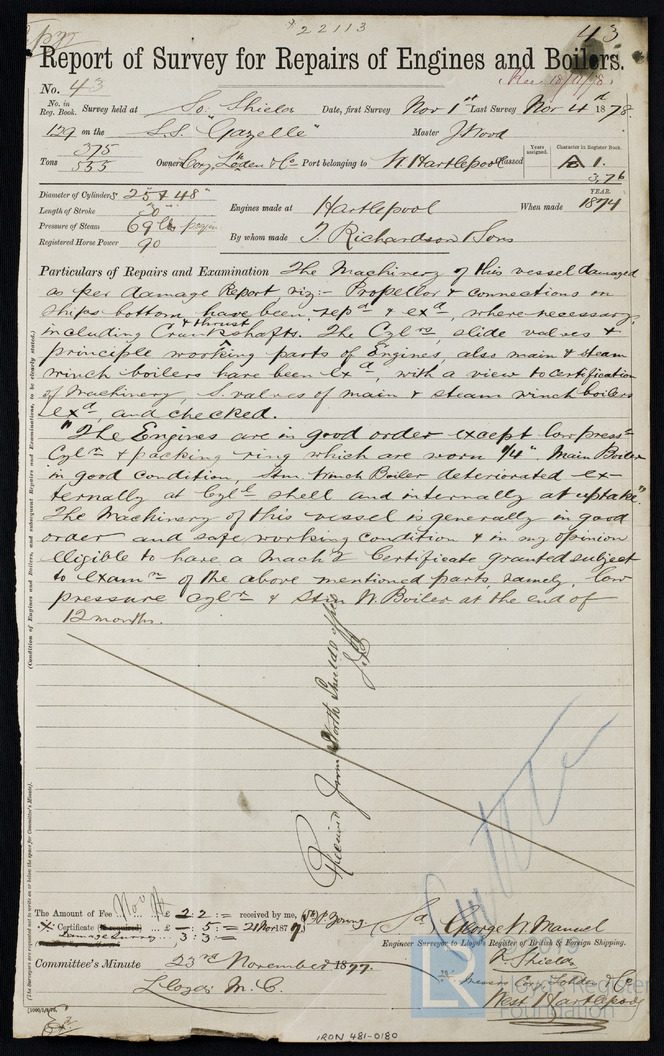 * 22113
43
Report of Survey for Repairs of Engines and Boilers.
No. 43
Rec 18/11/78
No. in Reg. Book. Survey held at So. Shields Date, first Survey Nov 1st Last Survey Nov 4th 1878.
129 on the S.S. "Gazelle" Master J Wood
Tons 375 / 555 Owners Cory, Lohden & Co Port belonging to W. Hartlepool Classed
Years assigned. Character in Register Book. A 1. 3,76
Diameter of Cylinders 25 & 48" Engines made at Hartlepool When made YEAR. 1874
Length of Stroke 30"
Pressure of Steam 69 lbs By whom made T. Richardson & Sons
Registered Horse Power 90
Particulars of Repairs and Examination The Machinery of this vessel damaged
as per damage Report, viz:- Propellor & connections on
ships bottom, have been repd & exd, where necessary,
including Crank & thrust shafts. The Cylrs, slide valves &
principle working parts of Engines, also main & steam
winch boilers have been exd, with a view to certification
of Machinery, S. valves of main & steam winch boilers
exd, and checked.
"The Engines are in good order except low press
Cylr & packing ring which are worn 1/4" Main Boiler
in good condition, Stm. winch Boiler deteriorated ex-
ternally at Cyl shell and internally at uptake".
The Machinery of this vessel is generally in good
order and safe working condition & in my opinion
eligible to have a Machy Certificate granted subject
to examn of the above mentioned parts, namely, low
pressure cylr & Stm W. Boiler at the end of
12 months.
(Condition of Engines and Boilers, and subsequent Repairs and Examinations, to be clearly stated.)
Received from North Shields office
The Amount of Fee £ 2 : 2 : = received by me,
Certificate (if required) £ - : 5 : = 21 Nov 187
Damage Survey 3 : 3 : =
Sd, George N. Manuel
Engineer Surveyor to Lloyd's Register of British & Foreign Shipping.
N. Shields
Committee's Minute 23rd November 1877.
Lloyds M.C.
To Messrs Cory, Lohden & Co
West Hartlepool
Lloyd's Register
Foundation
IRON 481-0180